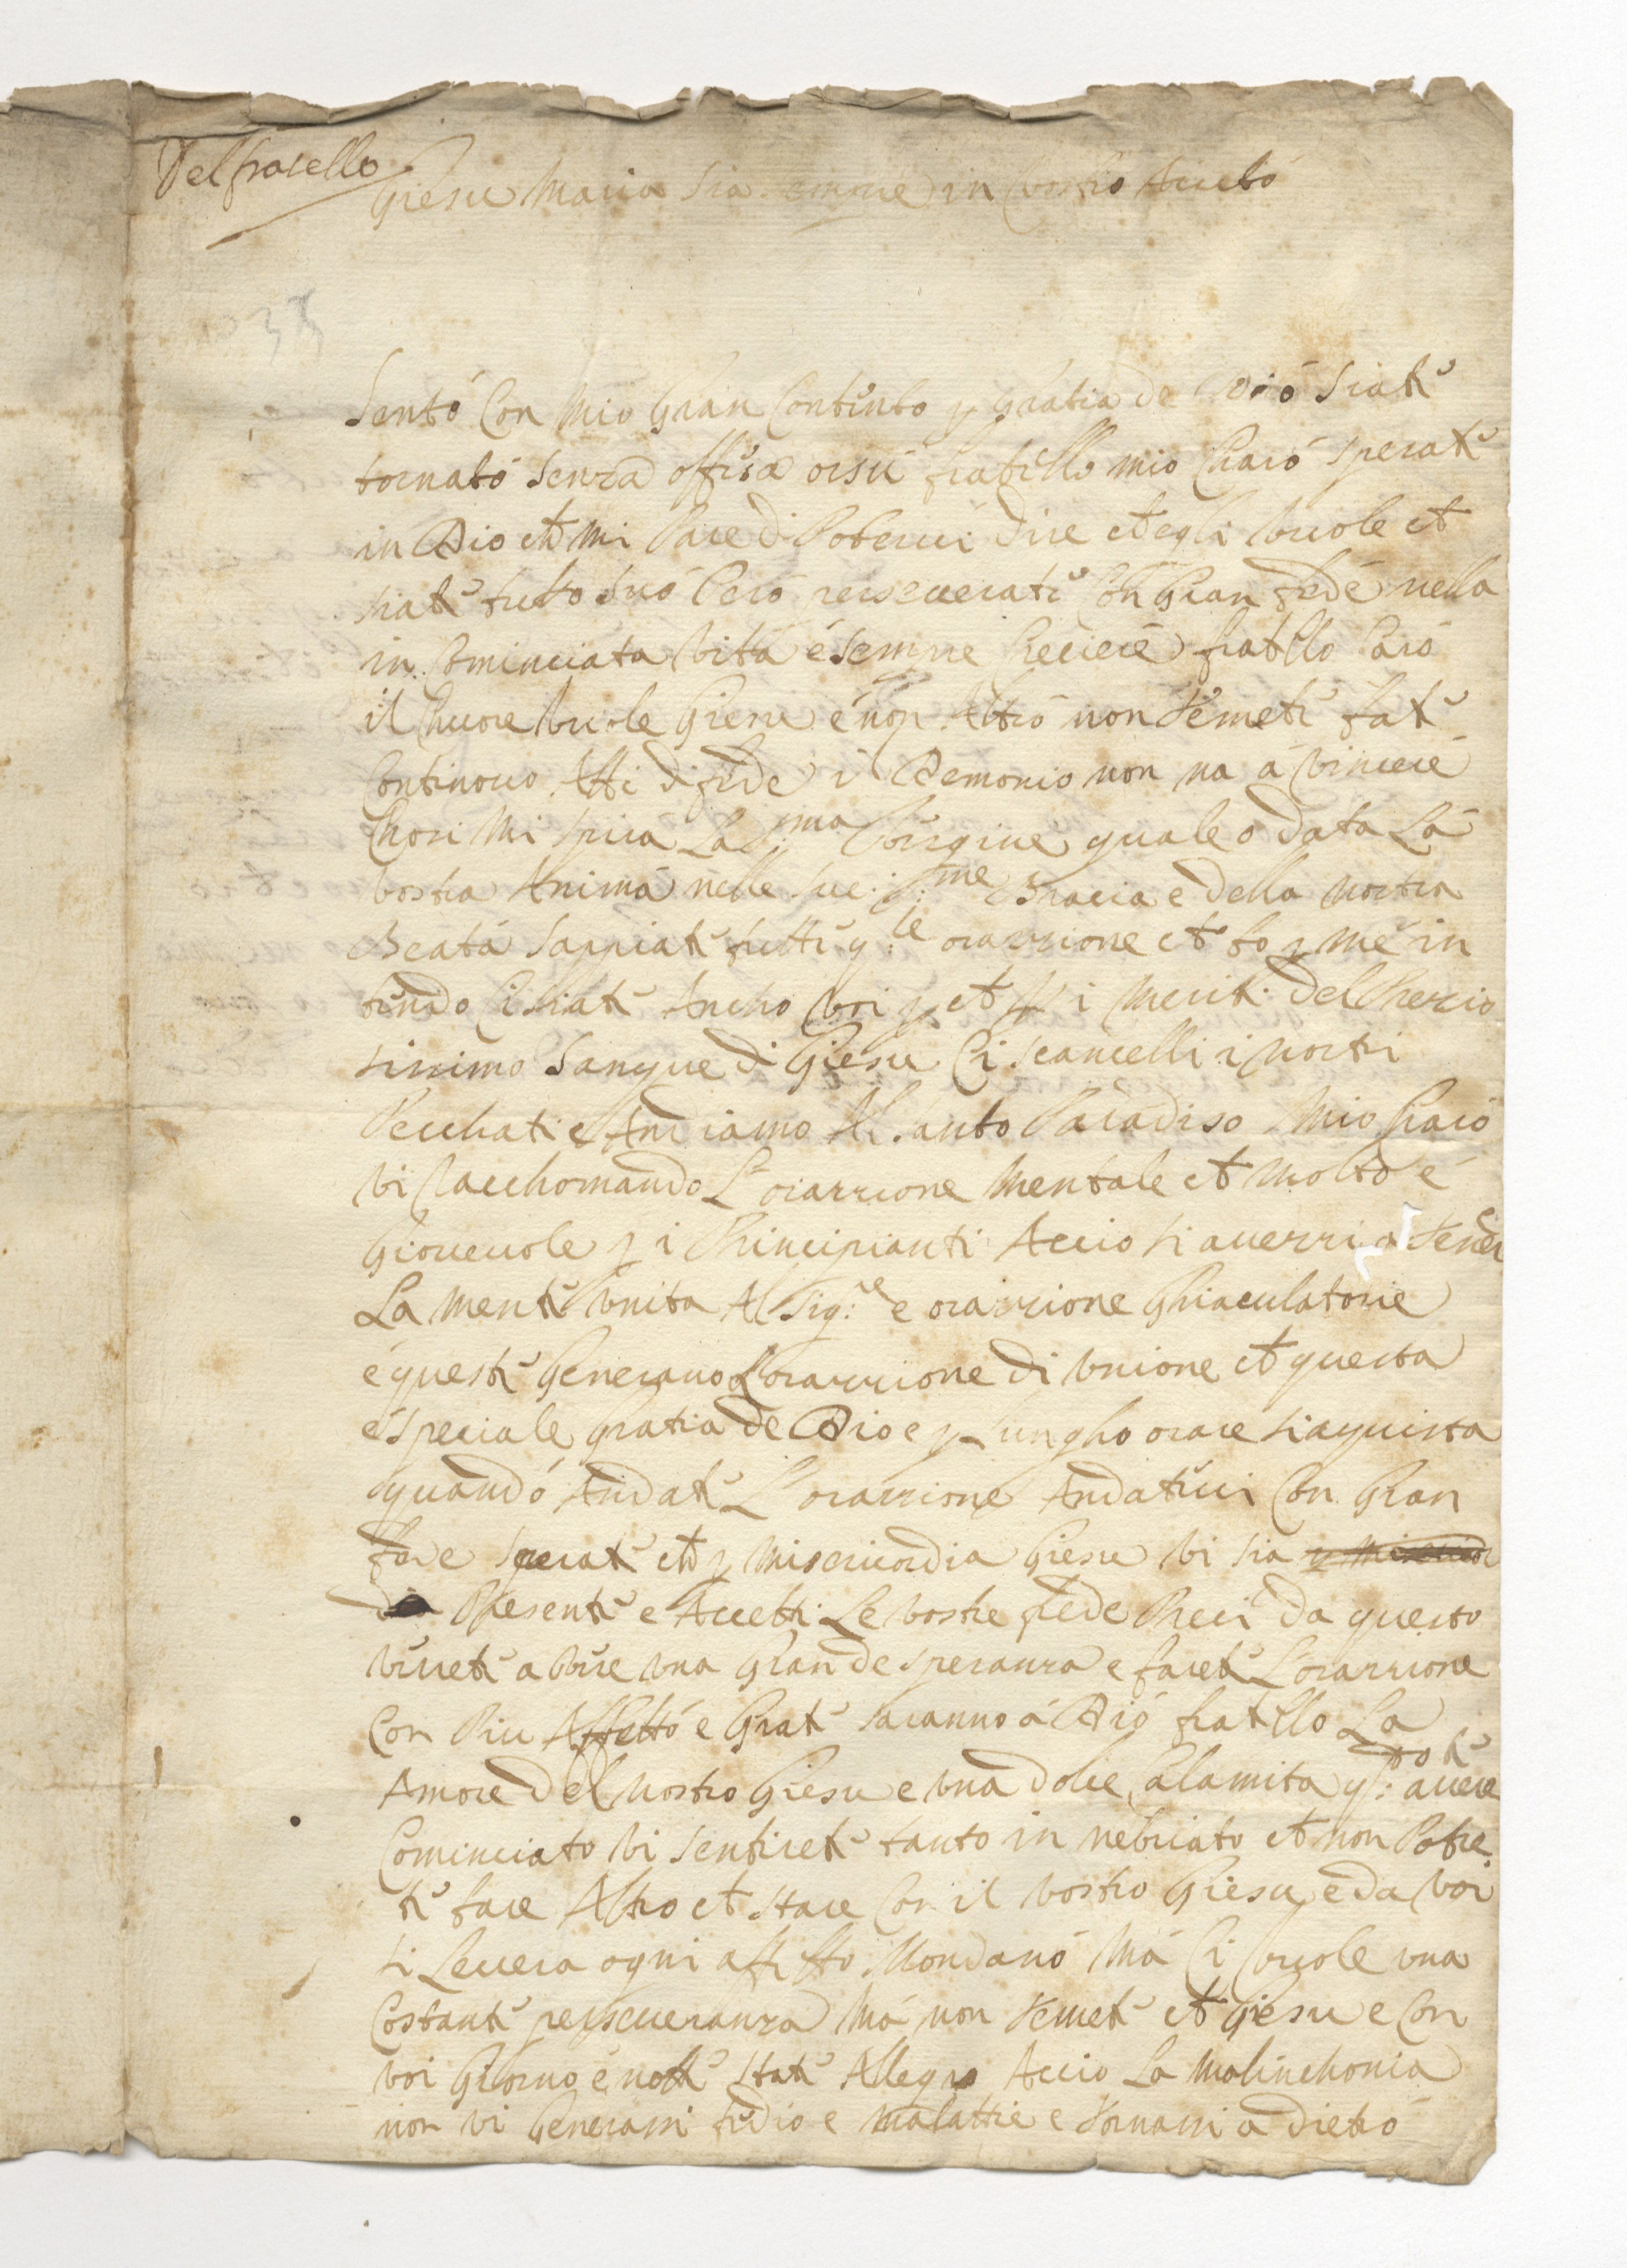 Del fratello
Giesu Maria sia sempre in vostro aiuto
33
Sento con mio gran contento p gratia de Dio siate
tornato senza offesa orsu fratello mio charo sperate
in Dio che mi pare di potervi dire che egli vuole che
siate tutto suo pero perseverate con gran fede nella
in cominciata vita e sempre crecere fratello caro
il chuore vuole Giesu e non altro non temete fate
continovo atti di fede il Demonio non na a vincere
chosi mi spira la S.ma Vergine quale o data la
vostra anima nelle sue S.me bracia e della nostra
Beata sappiate tutte q.le orazzione che fo p me in
tendo ci siate ancho voi p che p i meriti del Prezio
sissimo sangue di Giesu ci scancelli i nostri
pecchati e andiamo al santo Paradiso mio charo
vi racchomando l'orazzione mentale che molto e
giovevole p i principianti accio si avezzi a tener
la mente unita al Sig:re e orazzione ghiaculatorie
e queste generano l'orazzione di unione che questa
e speciale gratia de Dio e p lungho orare si aquista
quando andate l'orazzione andatevi con gran
fede sperate che p misericordia Giesu vi sia p misericor
dia presente e accetti le vostre fede preci da questo
verrete a avere una gran de speranza e farete l'orazzione
con piu affetto e grate saranno a Dio fratello la
amore del nostro Giesu e una dolce calamita q:to te avere
cominciato vi sentirete tanto in nebriato che non potre
te fare altro che stare con il vostro Giesu e da voi
si levera ogni affetto mondano ma ci vuole una
costante perseveranza ma non temete che Giesu e con
voi giorno e notte state allegro accio la malinchonia
non vi generassi tedio e malattie e tornassi a dietro